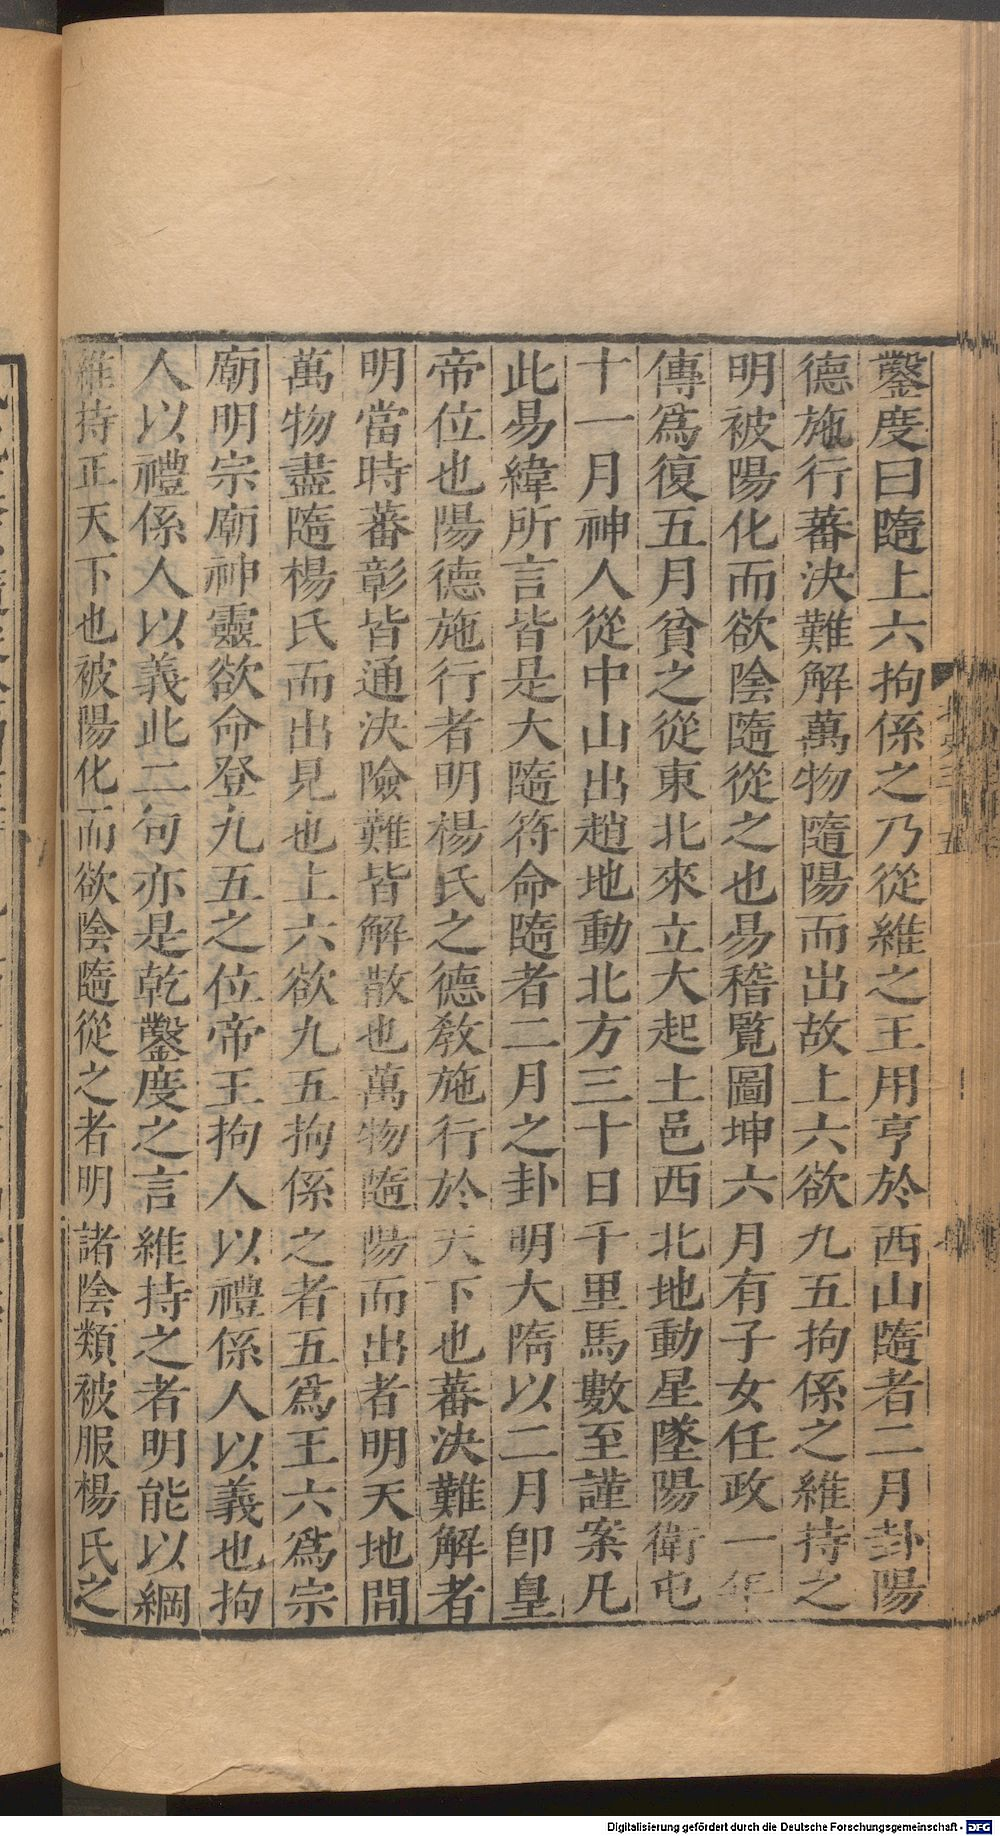 鑿度曰隨上六拘係之乃從維之王用亨於西山隨者二月卦陽
德施行蕃決難解萬物隨陽而出故上六欲九五拘係之維持之
明被陽化而欲陰隨從之也易稽覽圖坤六月有子女任政一年
傳爲復五月貧之從東北來立大起土邑西北地動星墜陽衛屯
十一月神人從中山出趙地動北方三十日千里馬數至謹案凡
此易緯所言皆是大隨符命隨者二月之卦明大隋以二月卽皇
帝位也陽德施行者明楊氏之德教施行於天下也蕃決難解者
明當時蕃彰皆通決險難皆解散也萬物隨陽而出者明天地間
萬物盡隨楊氏而出見也上六欲九五拘係之者五爲王六爲宗
廟明宗廟神靈欲命登九五之位帝王拘人以禮係人以義也拘
人以禮係人以義此二句亦是乾鑿度之言維持之者明能以綱
維持正天下也被陽化而欲陰隨從之者明諸陰類被服楊氏之
Digitalisierung gefördert durch die Deutsche Forschungsgemeinschaft - DFG